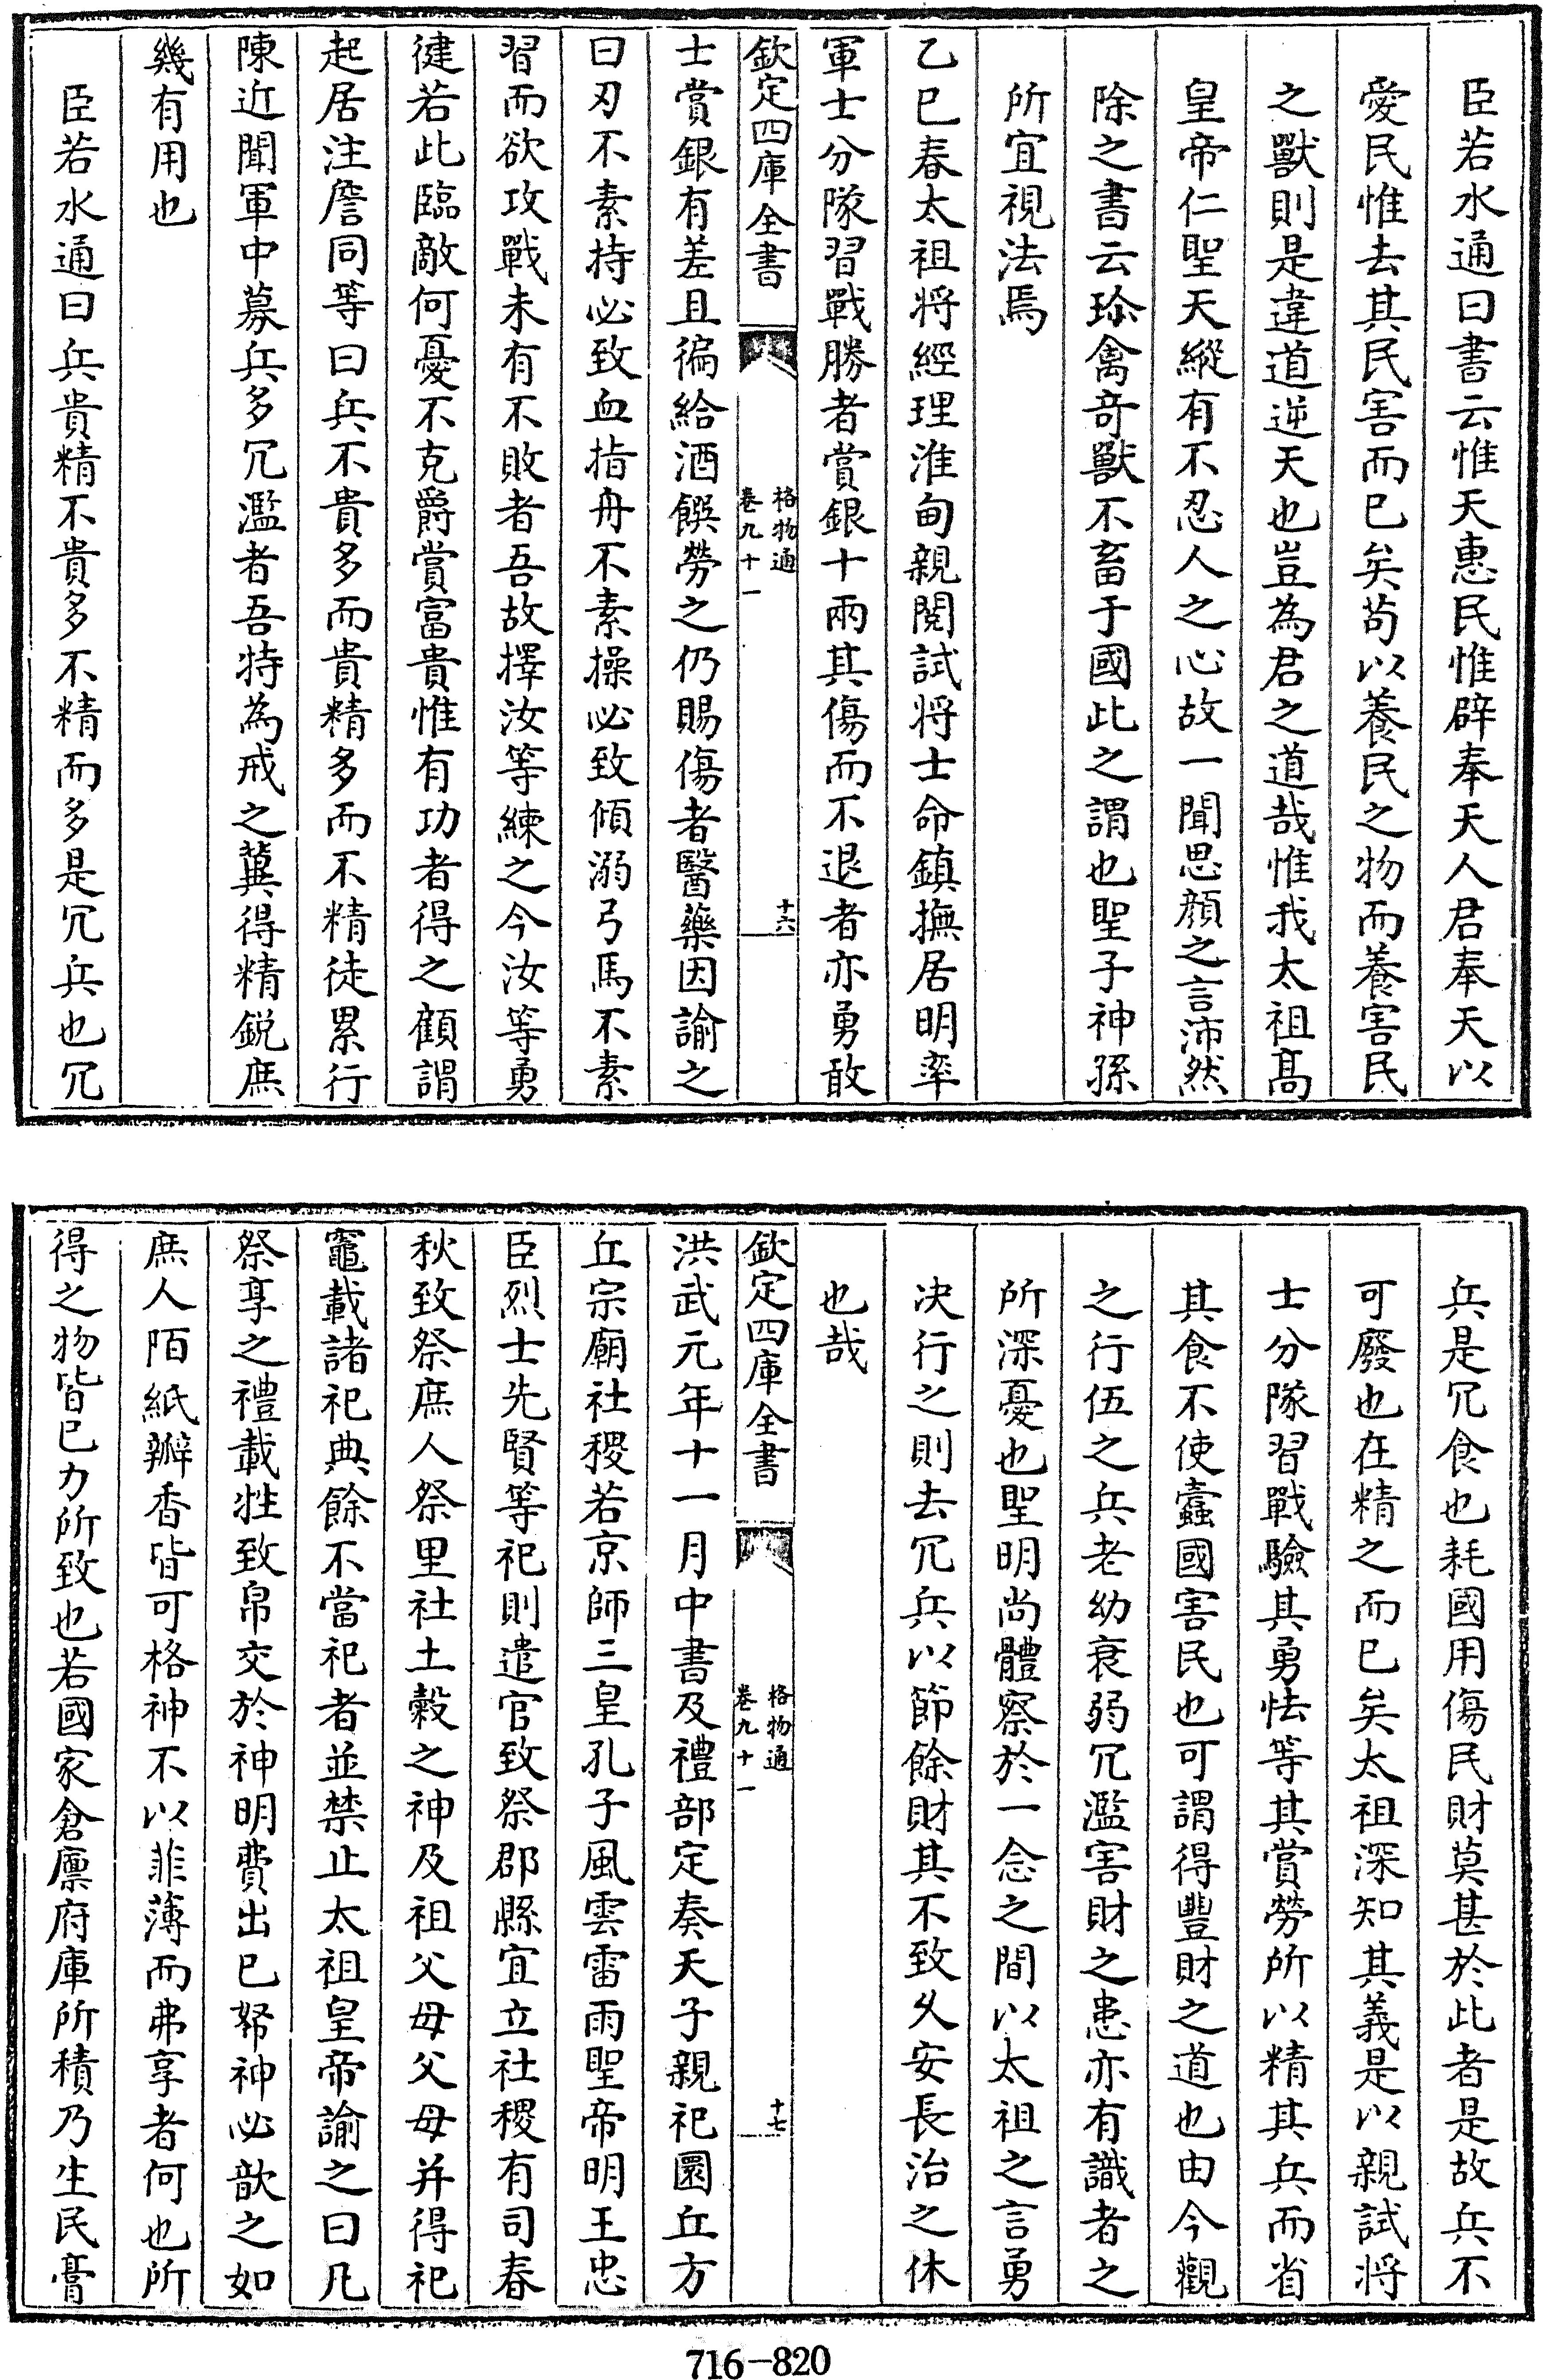 臣若水通曰書云惟天惠民惟辟奉天人君奉天以
愛民惟去其民害而已矣苟以養民之物而養害民
之獸則是違道逆天也豈為君之道哉惟我太祖髙
皇帝仁聖天縱有不忍人之心故一聞思顔之言沛然
除之書云珍禽竒獸不畜于國此之謂也聖子神孫
所宜視法焉
乙巳春太祖将經理淮甸親閱試将士命鎮撫居明率
軍士分隊習戰勝者賞銀十兩其傷而不退者亦勇敢
欽定四庫全書
格物通
卷九十一
十六
士賞銀有差且徧給酒饌勞之仍賜傷者醫藥因諭之
曰刃不素持必致血指舟不素操必致傾溺弓馬不素
習而欲攻戰未有不敗者吾故擇汝等練之今汝等勇
徤若此臨敵何憂不克爵賞富貴惟有功者得之顧謂
起居注詹同等曰兵不貴多而貴精多而不精徒累行
陳近聞軍中募兵多冗濫者吾特為戒之冀得精鋭庶
幾有用也
臣若水通曰兵貴精不貴多不精而多是冗兵也冗
兵是冗食也耗國用傷民財莫甚於此者是故兵不
可廢也在精之而已矣太祖深知其義是以親試将
士分隊習戰驗其勇怯等其賞勞所以精其兵而省
其食不使蠧國害民也可謂得豐財之道也由今觀
之行伍之兵老幼衰弱冗濫害財之患亦有識者之
所深憂也聖明尚體察於一念之間以太祖之言勇
决行之則去冗兵以節餘財其不致乆安長治之休
也哉
欽定四庫全書
格物通
卷九十一
十七
洪武元年十一月中書及禮部定奏天子親祀圜丘方
丘宗廟社稷若京師三皇孔子風雲雷雨聖帝明王忠
臣烈士先賢等祀則遣官致祭郡縣宜立社稷有司春
秋致祭庶人祭里社土榖之神及祖父母父母并得祀
竈載諸祀典餘不當祀者並禁止太祖皇帝諭之曰凡
祭享之禮載牲致帛交於神明費出已帑神必歆之如
庶人陌紙瓣香皆可格神不以菲薄而弗享者何也所
得之物皆已力所致也若國家倉廩府庫所積乃生民膏
716-820